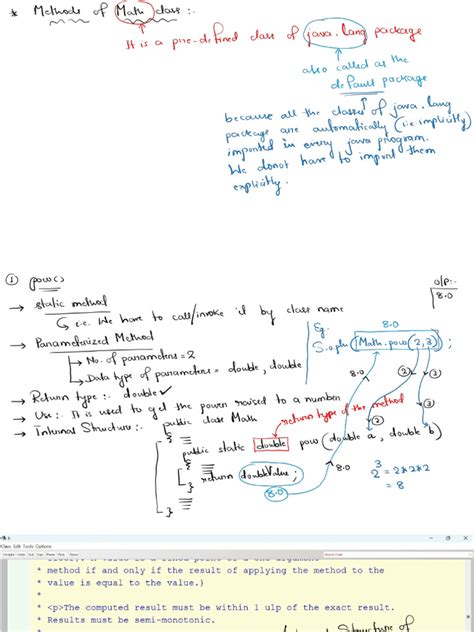 * Methods of Math class :-
It is a pre-defined class of java.lang package
also called as the
default package
because all the classes of java.lang
package are automatically (i.e. implicitly)
imported in every java program.
We donot have to import them
explicitly.
① pow()
O/P:-
8.0
→ static method
i.e. We have to call/invoke it by class name
→ Parameterized Method
→ No. of parameters = 2
→ Data type of parameters = double, double
Eg.
8.0
S.o.pln (Math.pow(2,3));
→ Return type :- double ✓
→ Use :- It is used to get the power raised to a number
→ Internal Structure :-
public class Math
return type of the method
{
public static double pow(double a, double b)
{
return doubleValue;
}
}
8.0
8.0
8.0
②
③
②
③
2³ = 2*2*2
= 8
Class Edit Tools Options
Compile Undo Cut Copy Paste Find Close
Source Code
* method if and only if the result of applying the method to the
* value is equal to the value.)
*
* <p>The computed result must be within 1 ulp of the exact result.
* Results must be semi-monotonic.
Structure of